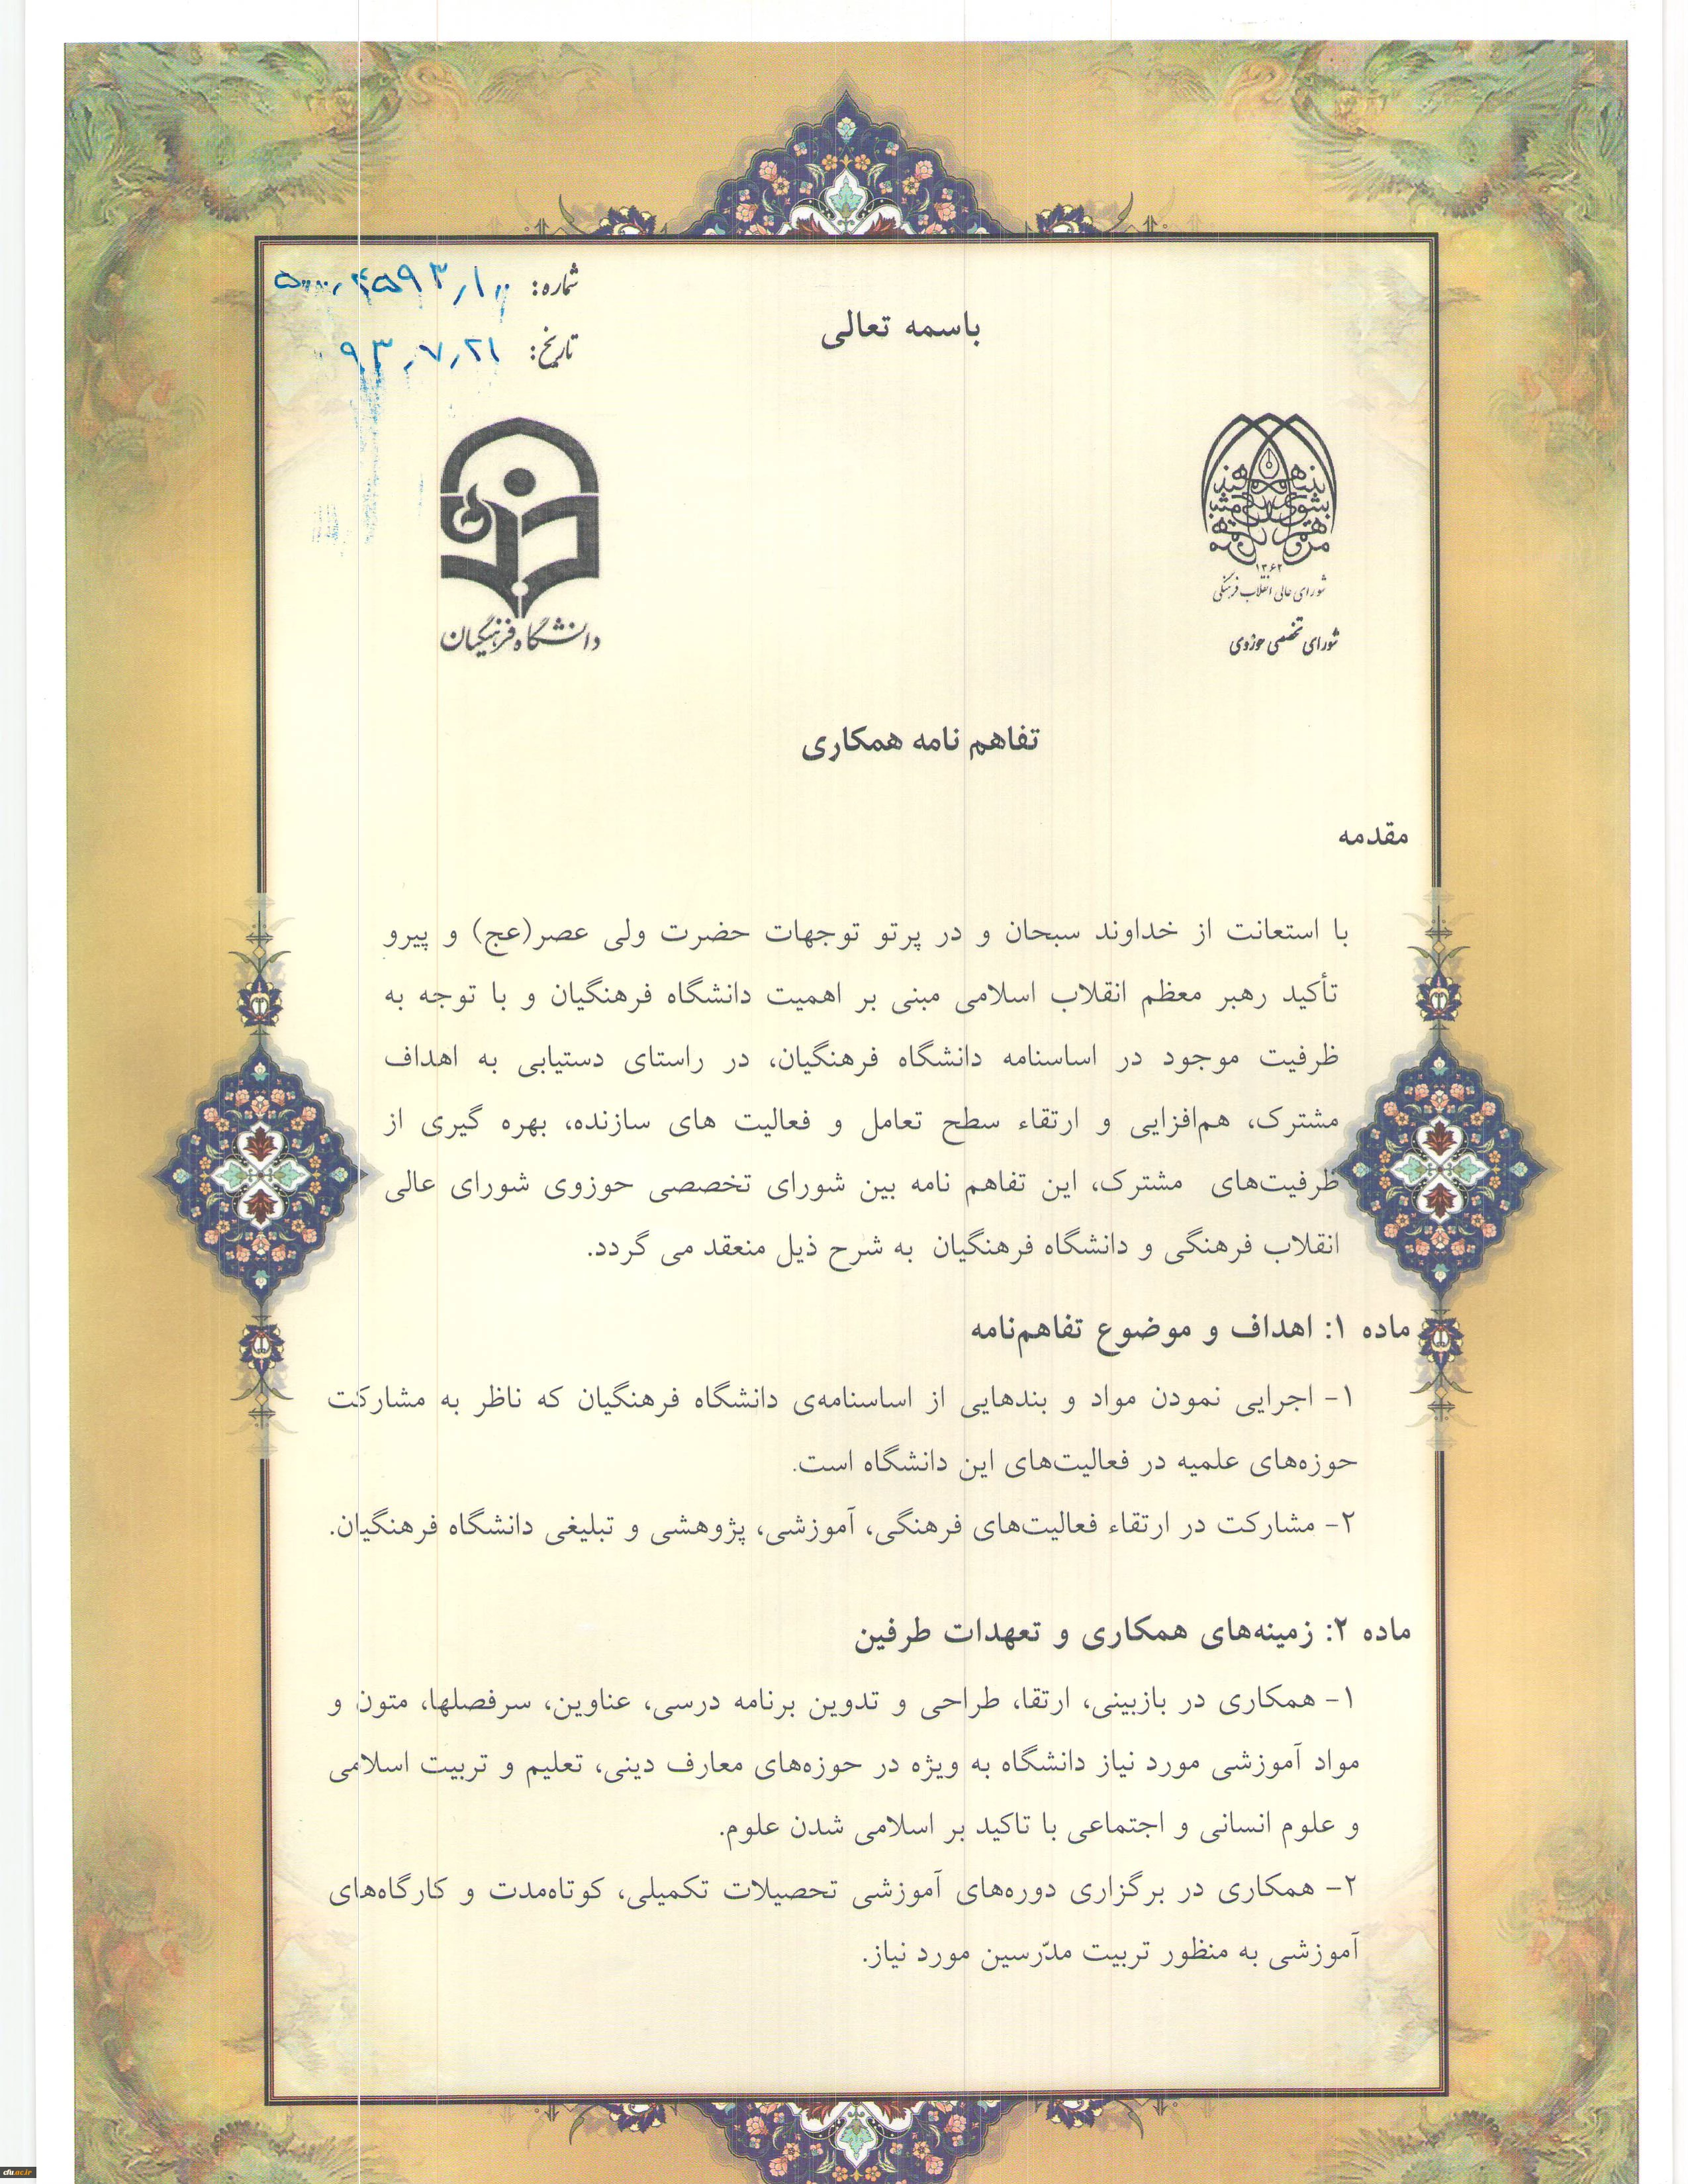 باسمه تعالی
شماره: ۵۰۰۰۰٫۴۵۹۳٫۱۰۰
تاریخ: ۹۳٫۷٫۲۱
۱۳۶۳
شورای عالی انقلاب فرهنگی
شورای تخصصی حوزوی
دانشگاه فرهنگیان
تفاهم نامه همکاری
مقدمه
با استعانت از خداوند سبحان و در پرتو توجهات حضرت ولی عصر(عج) و پیرو
تأکید رهبر معظم انقلاب اسلامی مبنی بر اهمیت دانشگاه فرهنگیان و با توجه به
ظرفیت موجود در اساسنامه دانشگاه فرهنگیان، در راستای دستیابی به اهداف
مشترک، هم‌افزایی و ارتقاء سطح تعامل و فعالیت های سازنده، بهره گیری از
ظرفیت‌های مشترک، این تفاهم نامه بین شورای تخصصی حوزوی شورای عالی
انقلاب فرهنگی و دانشگاه فرهنگیان به شرح ذیل منعقد می گردد.
ماده ۱: اهداف و موضوع تفاهم‌نامه
۱- اجرایی نمودن مواد و بندهایی از اساسنامه‌ی دانشگاه فرهنگیان که ناظر به مشارکت
حوزه‌های علمیه در فعالیت‌های این دانشگاه است.
۲- مشارکت در ارتقاء فعالیت‌های فرهنگی، آموزشی، پژوهشی و تبلیغی دانشگاه فرهنگیان.
ماده ۲: زمینه‌های همکاری و تعهدات طرفین
۱- همکاری در بازبینی، ارتقا، طراحی و تدوین برنامه درسی، عناوین، سرفصلها، متون و
مواد آموزشی مورد نیاز دانشگاه به ویژه در حوزه‌های معارف دینی، تعلیم و تربیت اسلامی
و علوم انسانی و اجتماعی با تاکید بر اسلامی شدن علوم.
۲- همکاری در برگزاری دوره‌های آموزشی تحصیلات تکمیلی، کوتاه‌مدت و کارگاه‌های
آموزشی به منظور تربیت مدّرسین مورد نیاز.
cfu.ac.ir